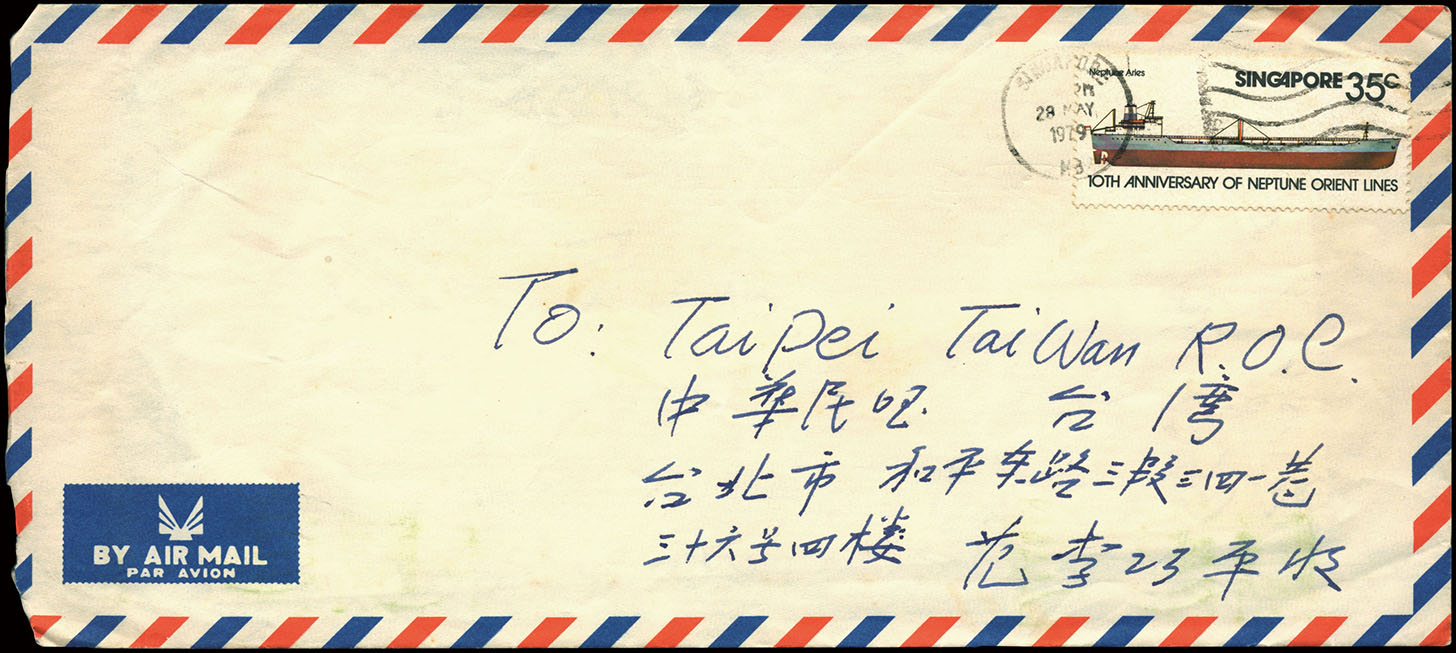 SINGAPORE
PM
28 MAY
1979
Neptune Aries
SINGAPORE 35c
10TH ANNIVERSARY OF NEPTUNE ORIENT LINES
To: Taipei TaiWan R.O.C.
中華民国 台湾
台北市 和平东路三段三四一巷
三十六号四楼 范李 平收
BY AIR MAIL
PAR AVION